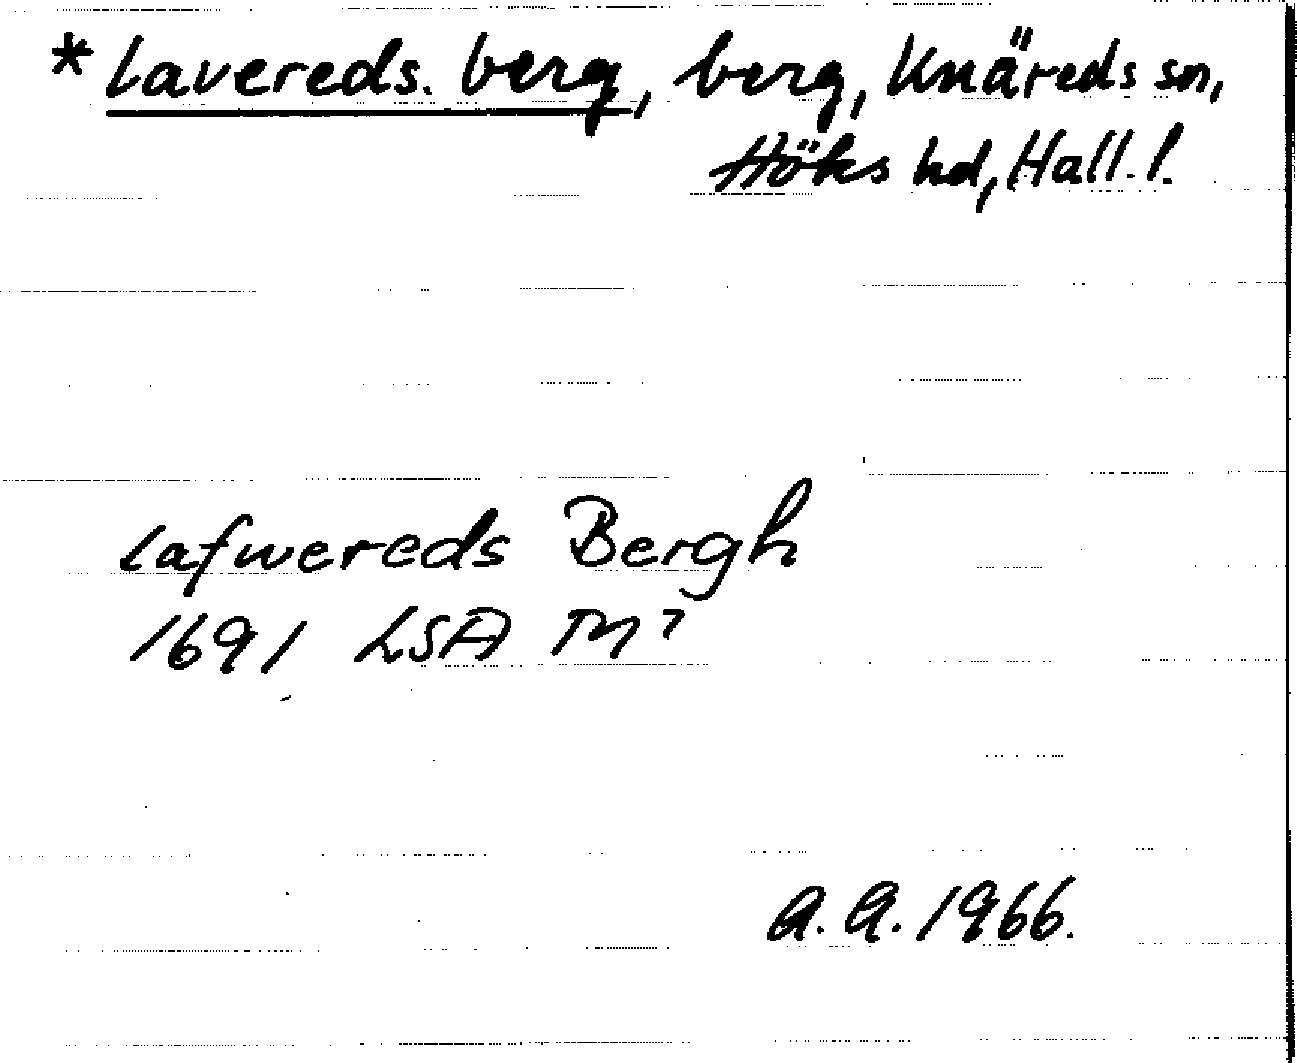 *Lavereds. berg, berg, Knäreds sn,
Höks hd, Hall. l.
Lafwereds Bergh
1691 LSA M7
A.A. 1966.